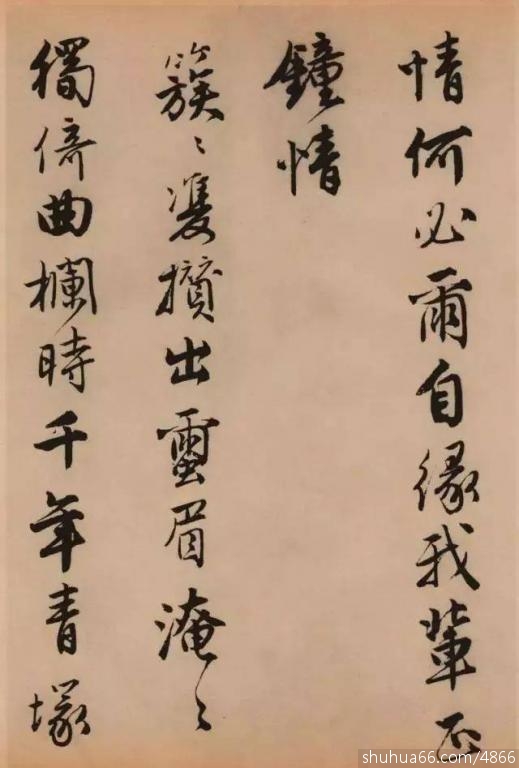 情何必爾自緣我輩正
鐘情
簇〻雙攢出蠒眉淹〻
獨倚曲欄時千年青塚
shuhua66.com/4866